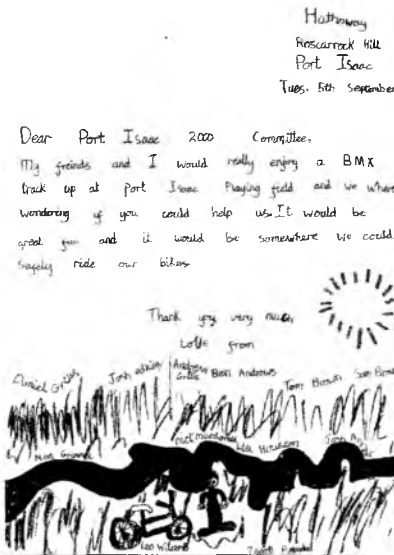 Hathaway
Roscarrock Hill
Port Isaac
Tues. 5th September
Dear Port Isaac 2000 Committee,
My freinds and I would really enjoy a BMX
track up at Port Isaac Playing field and we where
wondering if you could help us. It would be
great fun and it would be somewhere we could
safely ride our bikes
Thank you very much
Love from
Daniel
Josh
Andrew
Ben Andrews
Tom Brown
Sam Brown
Leo Williams